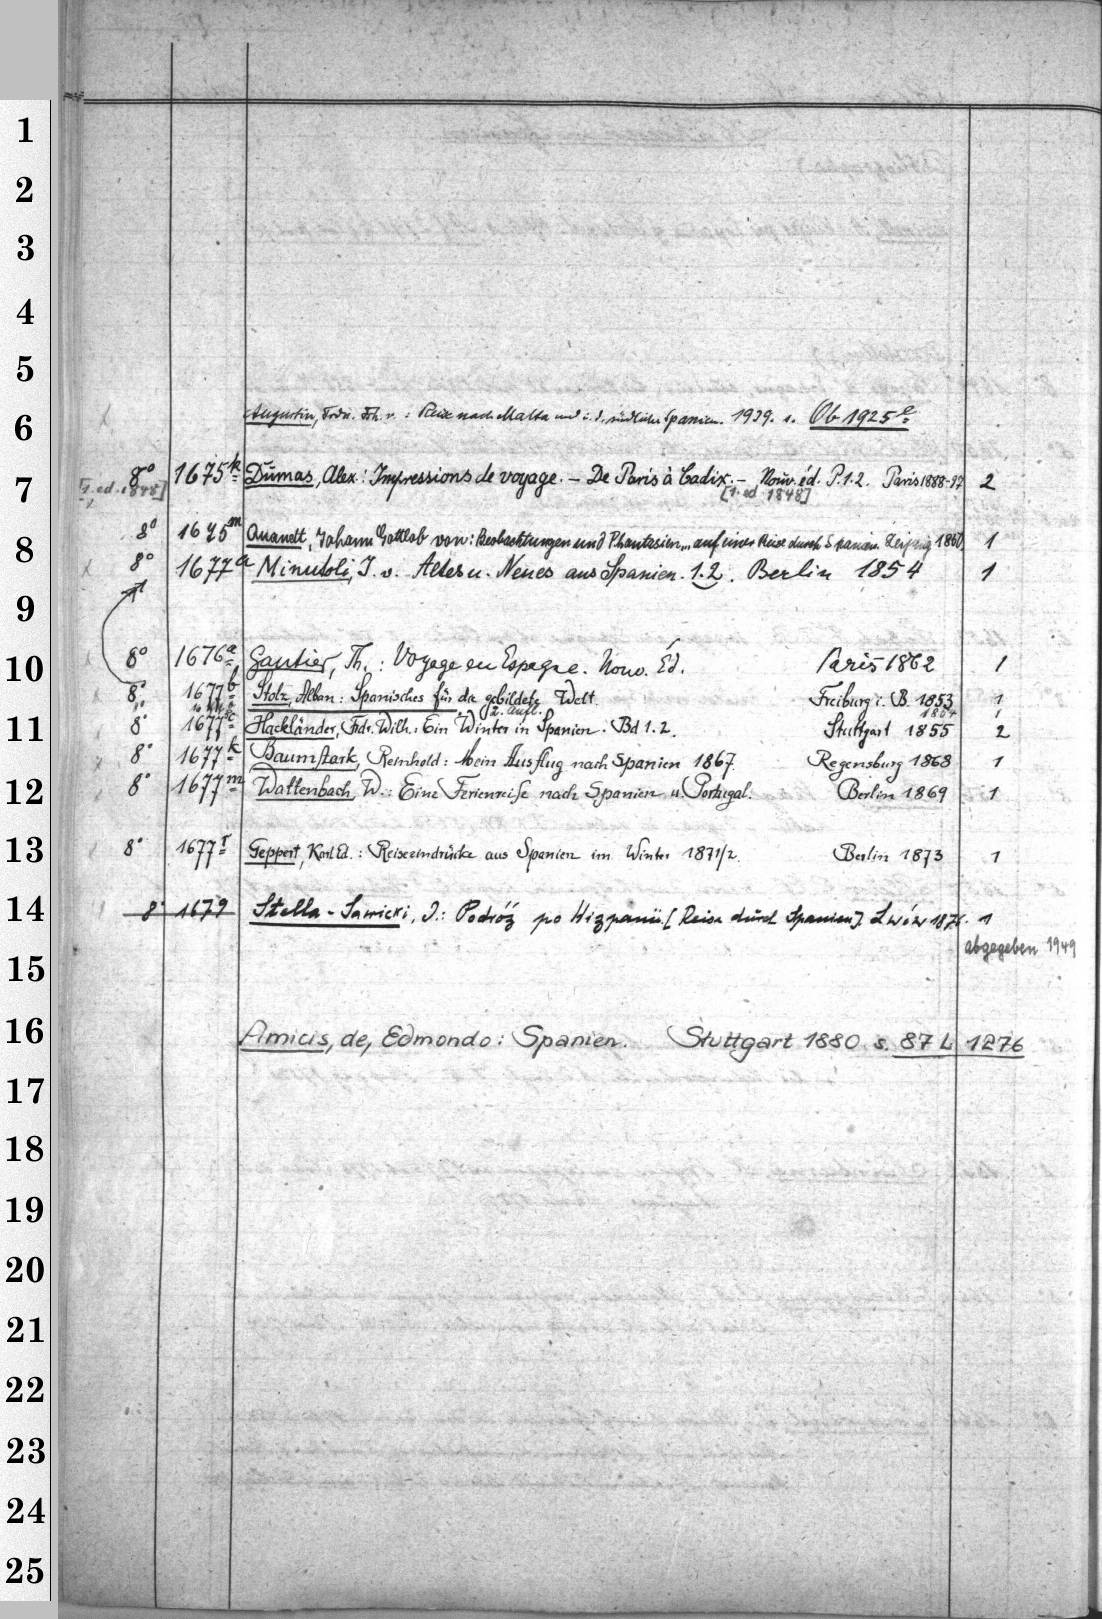 1
2
3
4
5
6
Augustin, Ferd. Frh. v.: Reise nach Malta und i. d. südliche Spanien. 1939. s. Ob 1925e
7
8° 1675k Dumas, Alex.: Impressions de voyage. – De Paris à Cadix. – Nouv. éd. P. 1.2. Paris 1888-97 2
[1. ed. 1848] [1. ed 1848]
8
8° 1675m Quandt, Johann Gottlob von: Beobachtungen und Phantasien... auf einer Reise durch Spanien. Leipzig 1850 1
8° 1677a Minutoli, J. v. Altes u. Neues aus Spanien. 1.2. Berlin 1854 1
9
10
8° 1676a Gautier, Th.: Voyage en Espagne. Nouv. Éd. Paris 1862 1
8° 1677b Stolz, Alban: Spanisches für die gebildete Welt. Freiburg i. B. 1853 1
2. Aufl. 1854 1
11
8° 1677c Hackländer, Fdr. Wilh.: Ein Winter in Spanien. Bd 1.2. Stuttgart 1855 2
8° 1677k Baumstark, Reinhold: Mein Ausflug nach Spanien 1867. Regensburg 1868 1
12
8° 1677m Wattenbach, W.: Eine Ferienreise nach Spanien u. Portugal. Berlin 1869 1
13
8° 1677r Geppert, Karl Ed.: Reiseeindrücke aus Spanien im Winter 1871/2. Berlin 1873 1
14
8° 1679 Stella-Sawicki, J.: Podróż po Hizpanii. [Reise durch Spanien]. Lwów 1876. 1
abgegeben 1949
15
16
Amicis, de, Edmondo: Spanien. Stuttgart 1880 s. 87 L 1276
17
18
19
20
21
22
23
24
25